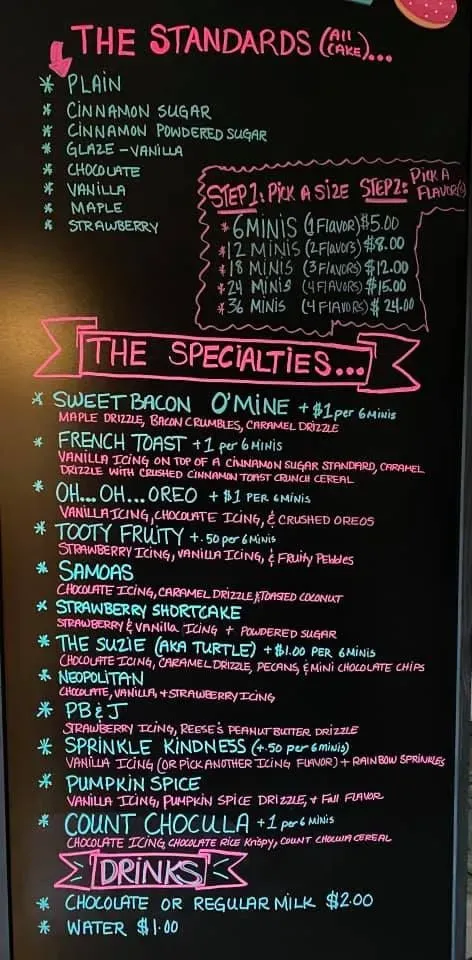 THE STANDARDS (All CAKE)...
* PLAIN
* CINNAMON SUGAR
* CINNAMON POWDERED SUGAR
* GLAZE - VANILLA
* CHOCOLATE
* VANILLA
* MAPLE
* STRAWBERRY
STEP 1: PICK A SIZE STEP 2: PICK A FLAVOR(S)
* 6 MINIS (1 FLAVOR) $5.00
* 12 MINIS (2 FLAVORS) $8.00
* 18 MINIS (3 FLAVORS) $12.00
* 24 MINIS (4 FLAVORS) $15.00
* 36 MINIS (4 FLAVORS) $24.00
THE SPECIALTIES...
* SWEET BACON O'MINE + $1 per 6 MINIS
MAPLE DRIZZLE, BACON CRUMBLES, CARAMEL DRIZZLE
* FRENCH TOAST +1 per 6 MINIS
VANILLA ICING ON TOP OF A CINNAMON SUGAR STANDARD, CARAMEL
DRIZZLE WITH CRUSHED CINNAMON TOAST CRUNCH CEREAL
* OH... OH... OREO + $1 PER 6 MINIS
VANILLA ICING, CHOCOLATE ICING, & CRUSHED OREOS
* TOOTY FRUITY +.50 per 6 Minis
STRAWBERRY ICING, VANILLA ICING, & Fruity Pebbles
* SAMOAS
CHOCOLATE ICING, CARAMEL DRIZZLE & TOASTED COCONUT
* STRAWBERRY SHORTCAKE
STRAWBERRY & Vanilla ICING + POWDERED SUGAR
* THE SUZIE (AKA TURTLE) + $1.00 PER 6 MINIS
CHOCOLATE ICING, CARAMEL DRIZZLE, PECANS, & MINI CHOCOLATE CHIPS
* NEOPOLITAN
CHOCOLATE, VANILLA, + STRAWBERRY ICING
* PB & J
STRAWBERRY ICING, REESE'S PEANUT BUTTER DRIZZLE
* SPRINKLE KINDNESS (+.50 per 6 minis)
VANILLA ICING (OR PICK ANOTHER ICING FLAVOR) + RAINBOW SPRINKLES
* PUMPKIN SPICE
VANILLA ICING, PUMPKIN SPICE DRIZZLE, + Fall FLAVOR
* COUNT CHOCULA +1 per 6 MINIS
CHOCOLATE ICING CHOCOLATE RICE Krispy, COUNT CHOCULA CEREAL
DRINKS
* CHOCOLATE OR REGULAR MILK $2.00
* WATER $1.00